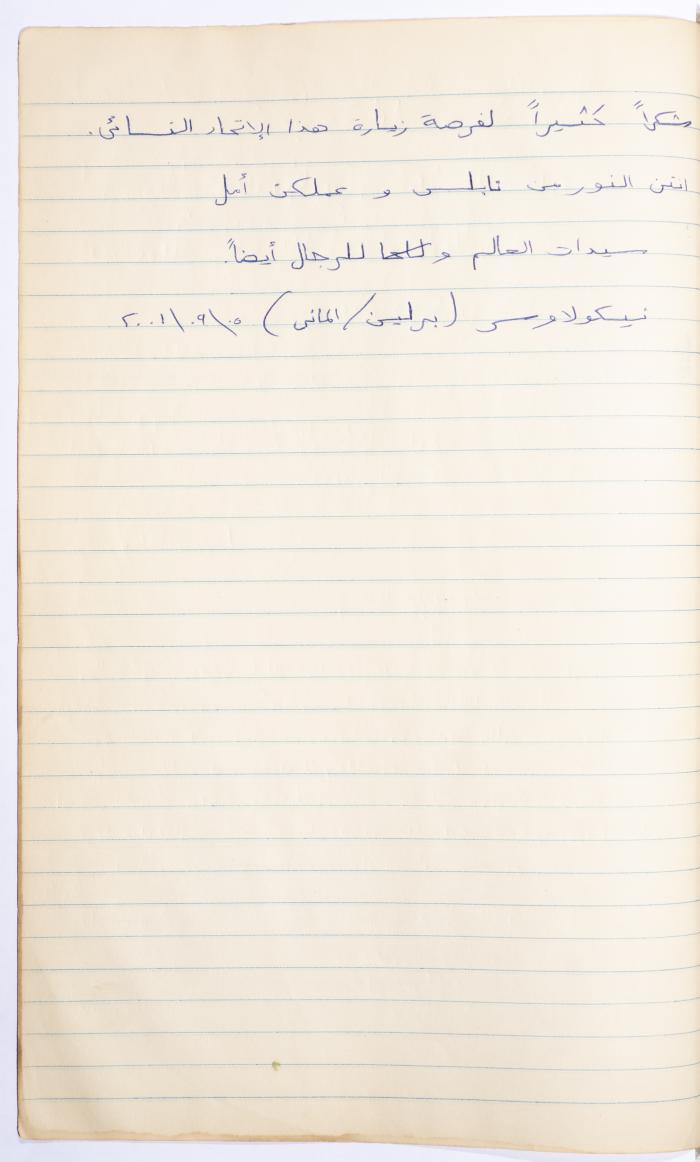 شكراً كثيراً لفرصة زيارة هذا الإتحاد النسائي.
انتن النور من نابلس و عملكن أمل
سيدات العالم و للرجال أيضاً.
نيكولاوس (برلين/الماني) ٢٠٠١\٠٩\٠٥